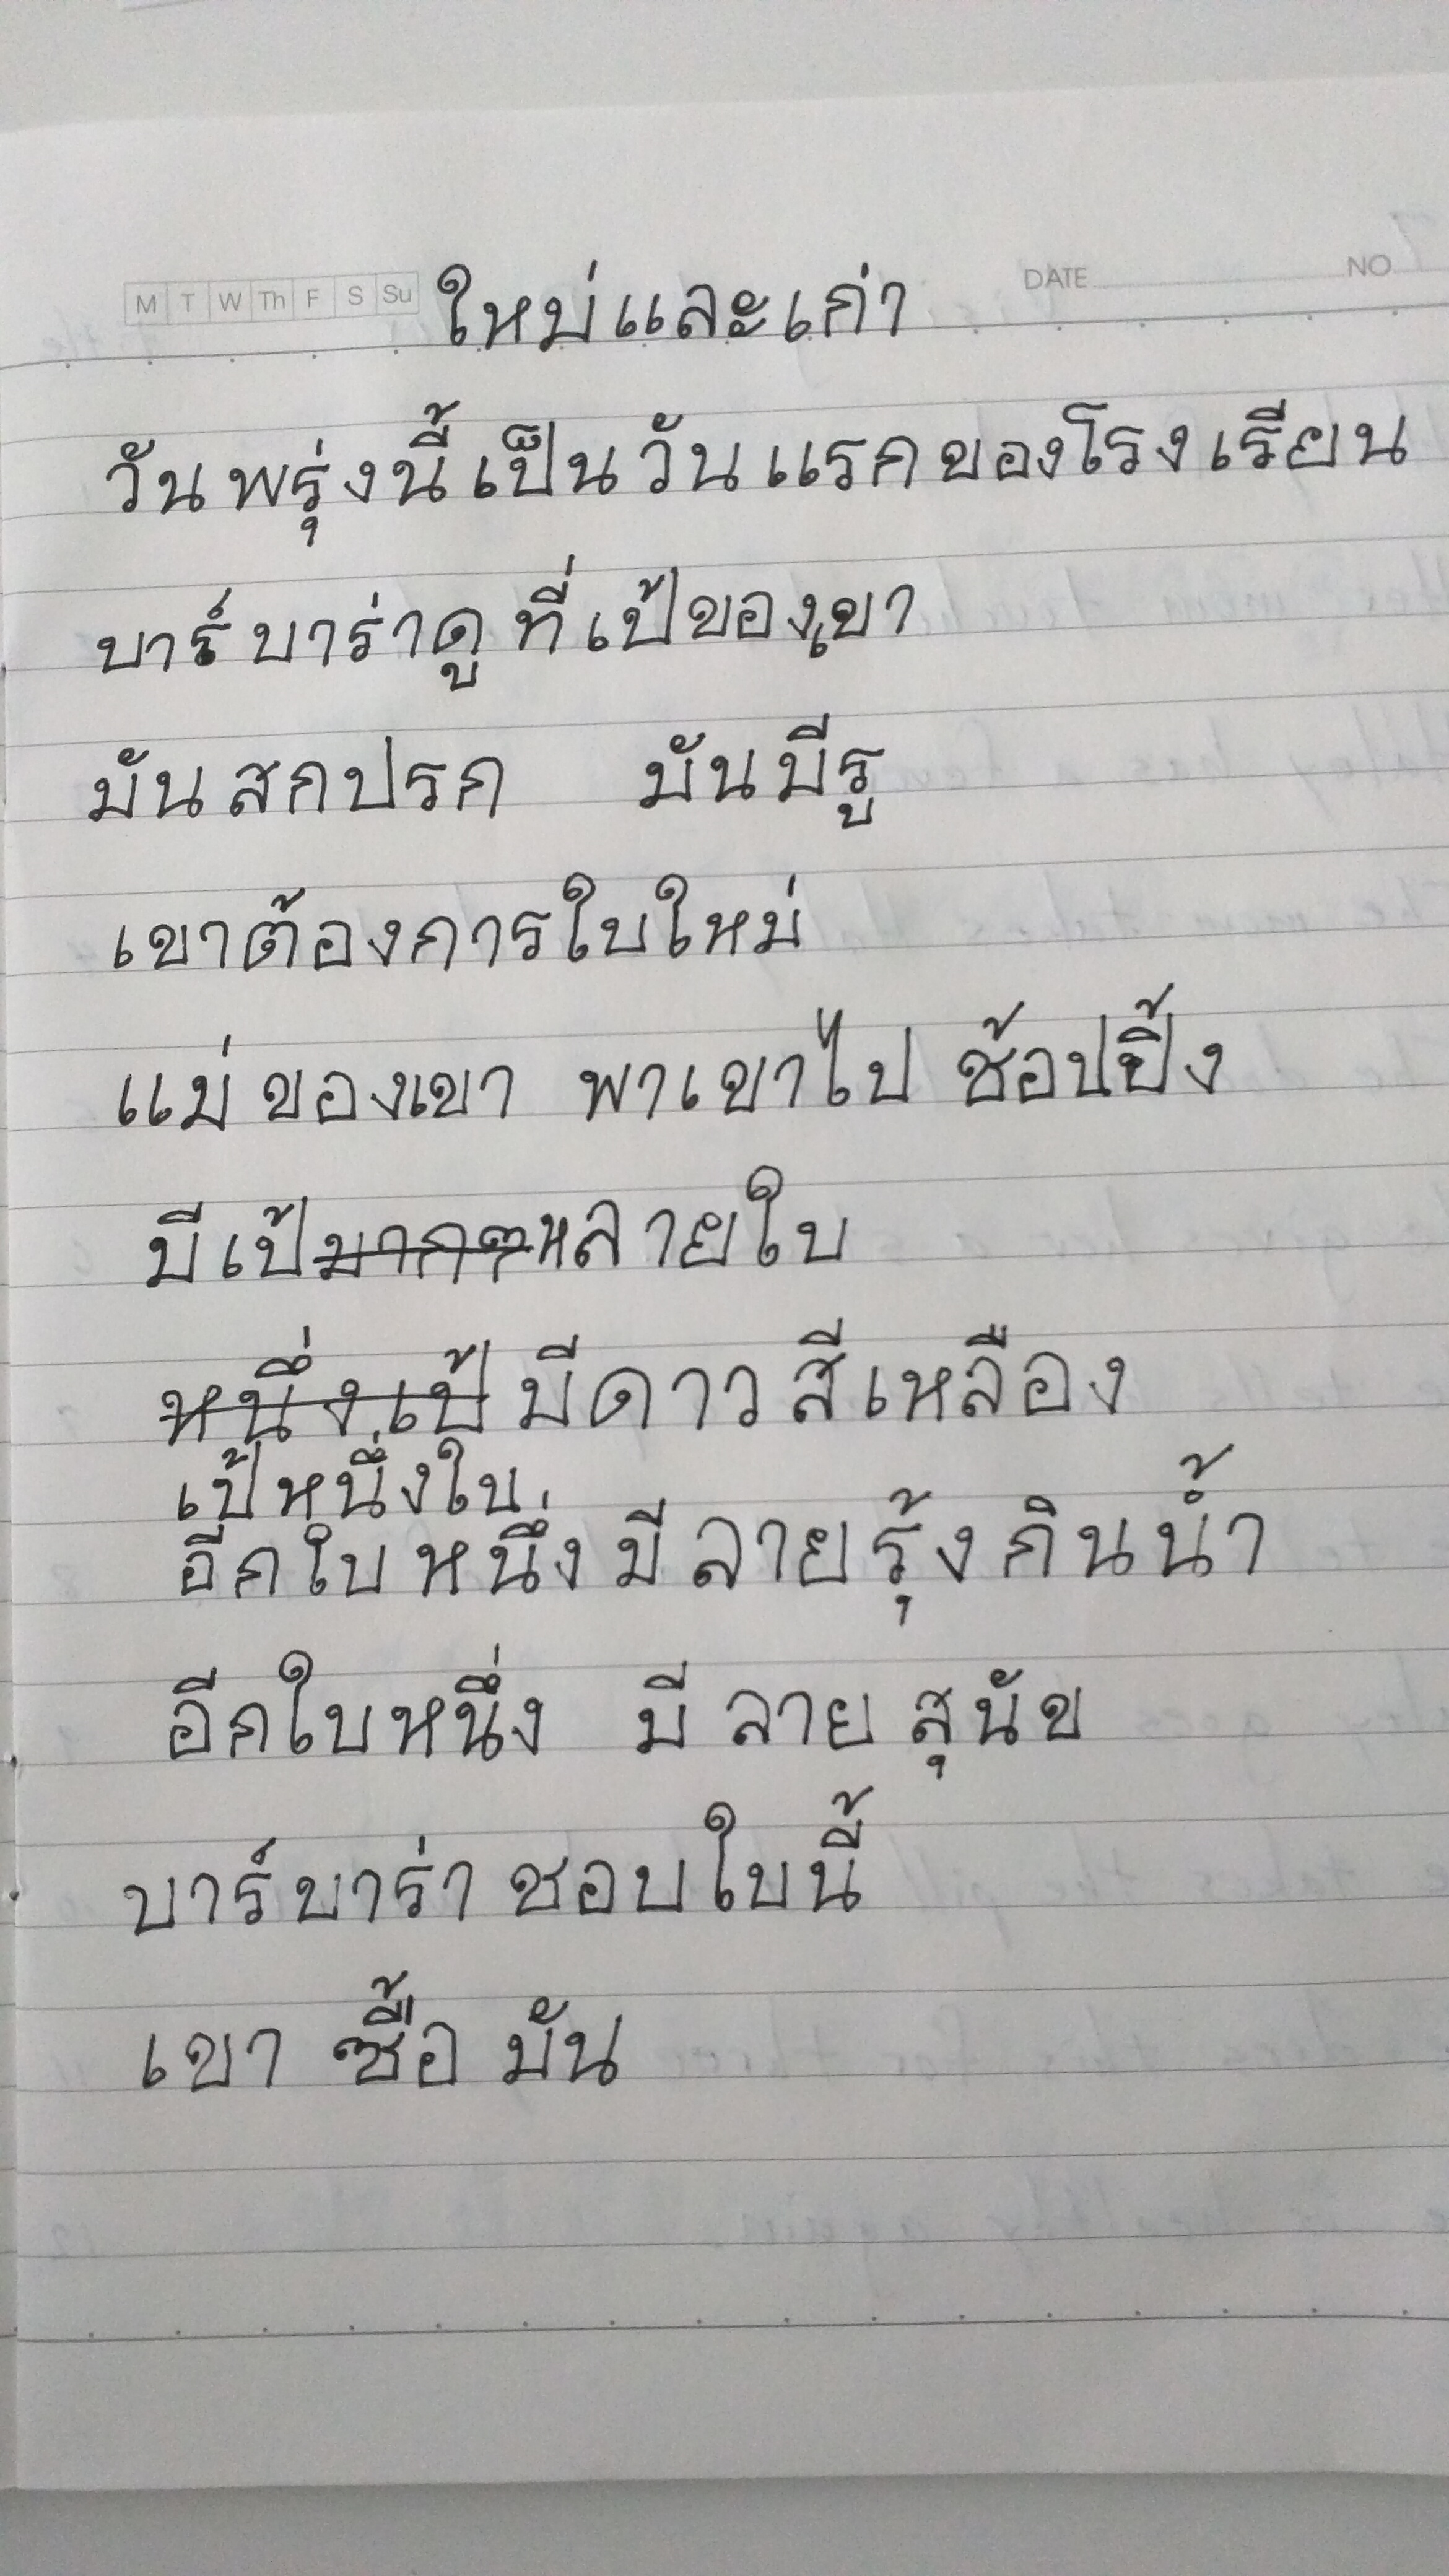 M T W Th F S Su ใหม่และเก่า DATE NO
วันพรุ่งนี้เป็นวันแรกของโรงเรียน
บาร์บาร่าดูที่เป้ของเขา
มันสกปรก มันมีรู
เขาต้องการใบใหม่
แม่ของเขา พาเขาไป ช้อปปิ้ง
มีเป้มากๆหลายใบ
หนึ่งเป้ มีดาวสีเหลือง
เป้หนึ่งใบ
อีกใบหนึ่งมีลายรุ้งกินน้ำ
อีกใบหนึ่ง มี ลาย สุนัข
บาร์บาร่า ชอบใบนี้
เขา ซื้อ มัน